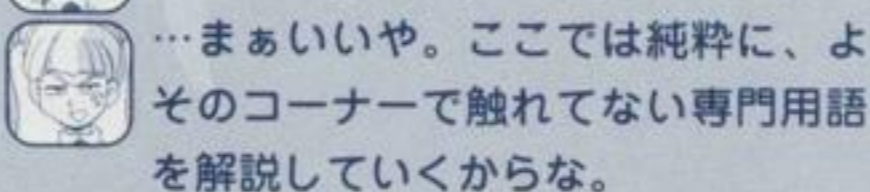 …まぁいいや。ここでは純粋に、よ
そのコーナーで触れてない専門用語
を解説していくからな。